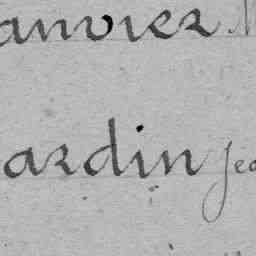 anvier
ardin Jea